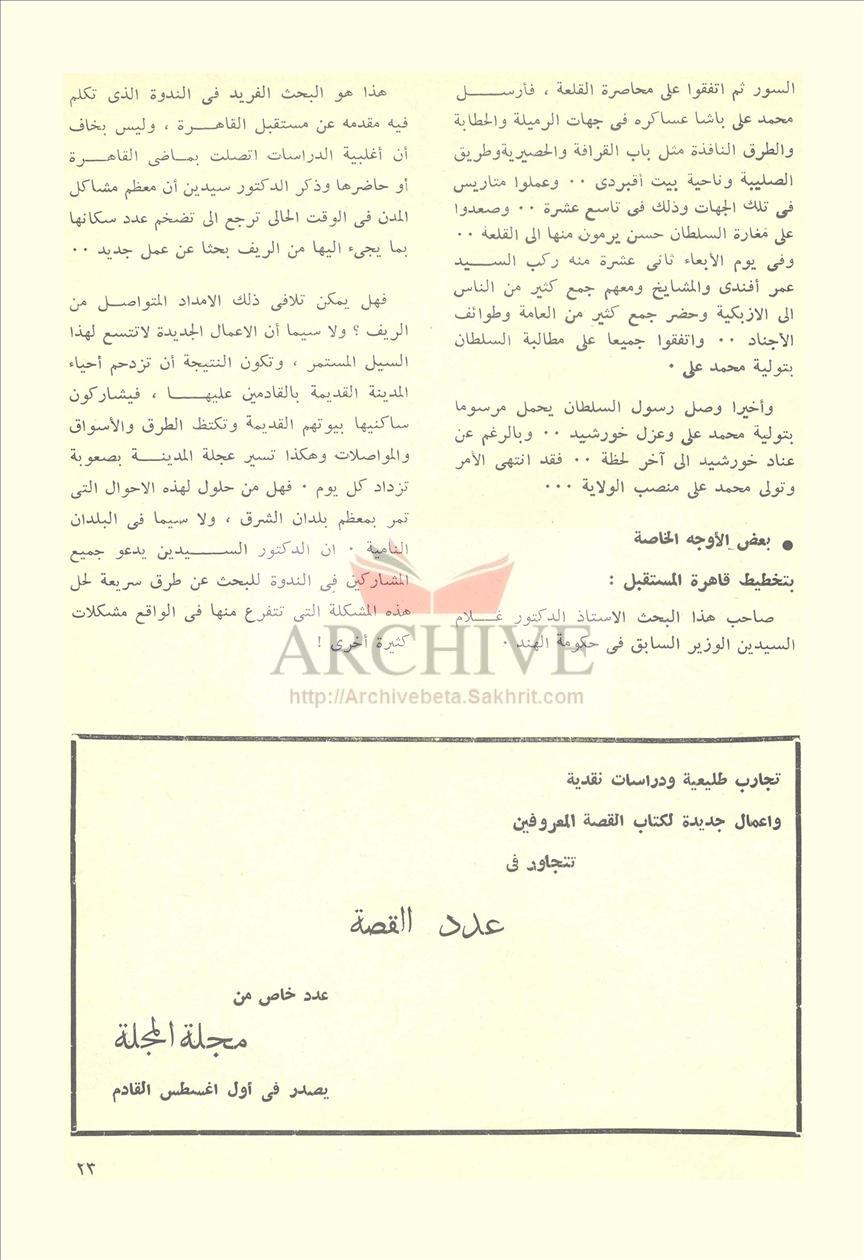 السور ثم اتفقوا على محاصرة القلعة ، فأرسل
محمد على باشا عساكره فى جهات الرميلة والحطابة
والطرق النافذة مثل باب القرافة والحصيرية وطريق
الصليبة وناحية بيت أقبردى ٠٠ وعملوا متاريس
فى تلك الجهات وذلك فى تاسع عشرة ٠٠ وصعدوا
على مغارة السلطان حسن يرمون منها الى القلعة ٠٠
وفى يوم الأبعاء ثانى عشرة منه ركب السيد
عمر أفندى والمشايخ ومعهم جمع كثير من الناس
الى الازبكية وحضر جمع كثير من العامة وطوائف
الأجناد ٠٠ واتفقوا جميعا على مطالبة السلطان
بتولية محمد على ٠
وأخيرا وصل رسول السلطان يحمل مرسوما
بتولية محمد على وعزل خورشيد ٠٠ وبالرغم عن
عناد خورشيد الى آخر لحظة ٠٠ فقد انتهى الأمر
وتولى محمد على منصب الولاية ٠٠٠
● بعض الأوجه الخاصة
بتخطيط قاهرة المستقبل :
صاحب هذا البحث الاستاذ الدكتور غلام
السيدين الوزير السابق فى حكومة الهند ٠
هذا هو البحث الفريد فى الندوة الذى تكلم
فيه مقدمه عن مستقبل القاهرة ، وليس بخاف
أن أغلبية الدراسات اتصلت بماضى القاهرة
أو حاضرها وذكر الدكتور سيدين أن معظم مشاكل
المدن فى الوقت الحالى ترجع الى تضخم عدد سكانها
بما يجىء اليها من الريف بحثا عن عمل جديد ٠٠
فهل يمكن تلافى ذلك الامداد المتواصل من
الريف ؟ ولا سيما أن الاعمال الجديدة لاتتسع لهذا
السيل المستمر ، وتكون النتيجة أن تزدحم أحياء
المدينة القديمة بالقادمين عليها ، فيشاركون
ساكنيها بيوتهم القديمة وتكتظ الطرق والأسواق
والمواصلات وهكذا تسير عجلة المدينة بصعوبة
تزداد كل يوم ٠ فهل من حلول لهذه الاحوال التى
تمر بمعظم بلدان الشرق ، ولا سيما فى البلدان
النامية ٠ ان الدكتور السيدين يدعو جميع
المشاركين فى الندوة للبحث عن طرق سريعة لحل
هذه المشكلة التى تتفرع منها فى الواقع مشكلات
كثيرة أخرى !
ARCHIVE
http://Archivebeta.Sakhrit.com
تجارب طليعية ودراسات نقدية
واعمال جديدة لكتاب القصة المعروفين
تتجاور فى
عدد القصة
عدد خاص من
مجلة المجلة
يصدر فى أول اغسطس القادم
٢٣